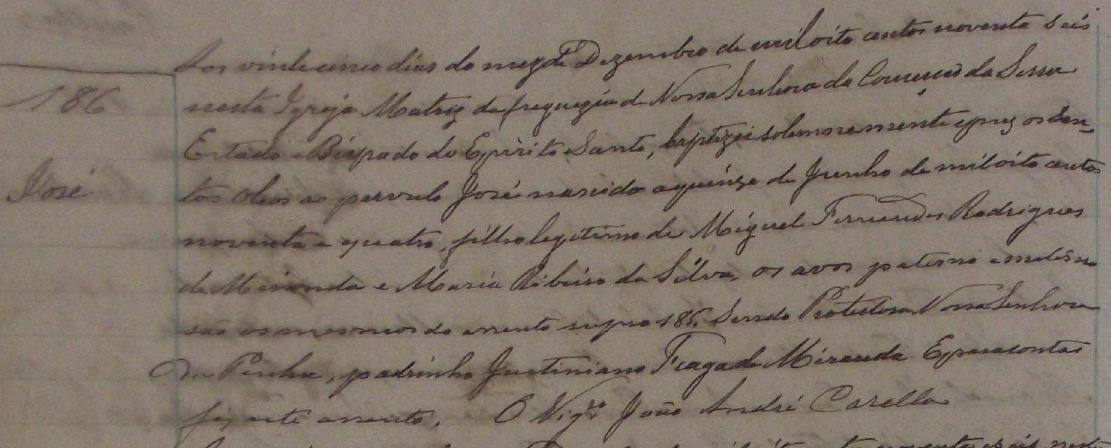 Aos vinte cinco dias do mez de Dezembro de mil oito centos noventa seis
186
nesta Igreja Matriz da freguezia de Nossa Senhora da Conceição da Serra
Estado e Bispado do Espirito Santo, baptizei solemnemente e puz os San-
José
tos Oleos ao parvulo José nascido a quinze de Junho de mil oito centos
noventa e quatro, filho legitimo de Miguel Fernandes Rodrigues
de Miranda e Maria Ribeiro da Silva, os avos paterno e materno
são os mesmos do assento supra 185. Sendo Protectora Nossa Senhora
da Penha, padrinho Justiniano Fraga de Miranda E para constar
fiz este assento. O Vigrº João André Casella